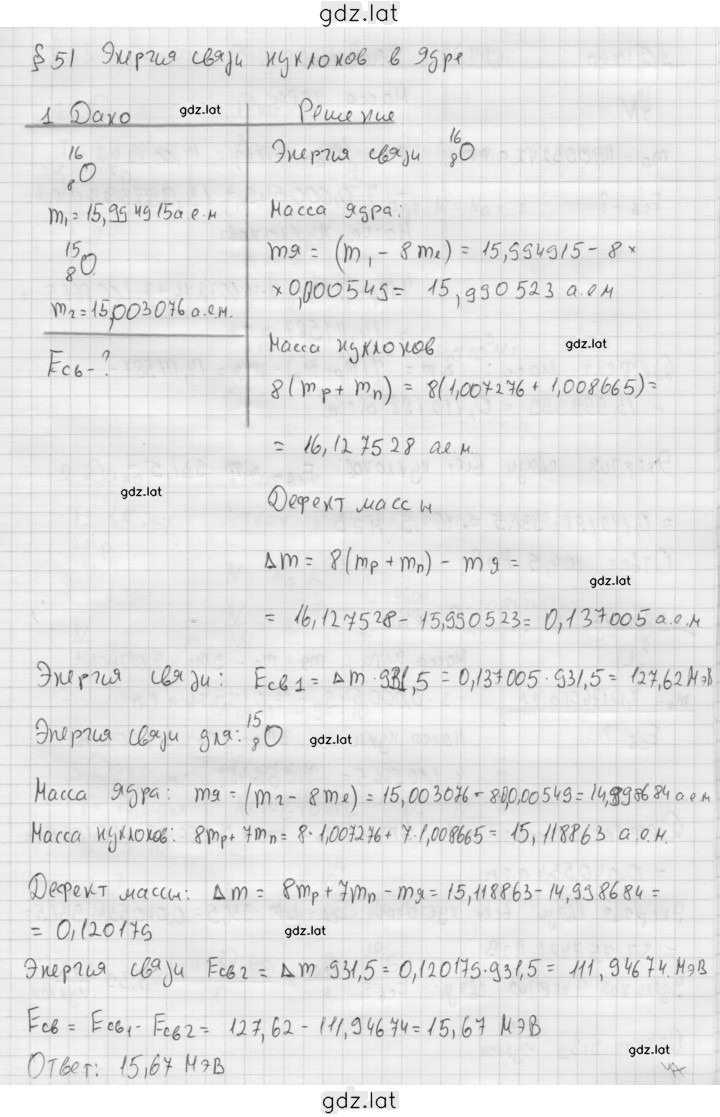 gdz.lat
§ 51 Энергия связи нуклонов в ядре
1 Дано gdz.lat Решение
¹⁶₈O
m₁ = 15,994915 а.е.м
¹⁵₈O
m₂ = 15,003076 а.е.м.
Eсв - ?
gdz.lat
Энергия связи ¹⁶₈O
Масса ядра:
mя = (m₁ - 8 mₑ) = 15,994915 - 8 ×
× 0,000549 = 15,990523 а.е.м
Масса нуклонов gdz.lat
8 (mₚ + mₙ) = 8(1,007276 + 1,008665) =
= 16,127528 а.е.м.
Дефект массы
Δm = 8(mₚ + mₙ) - mя =
gdz.lat
= 16,127528 - 15,990523 = 0,137005 а.е.м
Энергия связи: Eсв1 = Δm · 931,5 = 0,137005 · 931,5 = 127,62 МэВ
Энергия связи для: ¹⁵₈O gdz.lat
Масса ядра: mя = (m₂ - 8mₑ) = 15,003076 - 8·0,00549 = 14,998684 а.е.м
Масса нуклонов: 8mₚ + 7mₙ = 8 · 1,007276 + 7 · 1,008665 = 15,118863 а.е.м.
Дефект массы: Δm = 8mₚ + 7mₙ - mя = 15,118863 - 14,998684 =
= 0,120179 gdz.lat
Энергия связи Eсв2 = Δm · 931,5 = 0,120179 · 931,5 = 111,94674 МэВ
Eсв = Eсв1 - Eсв2 = 127,62 - 111,94674 = 15,67 МэВ
Ответ: 15,67 МэВ gdz.lat
gdz.lat